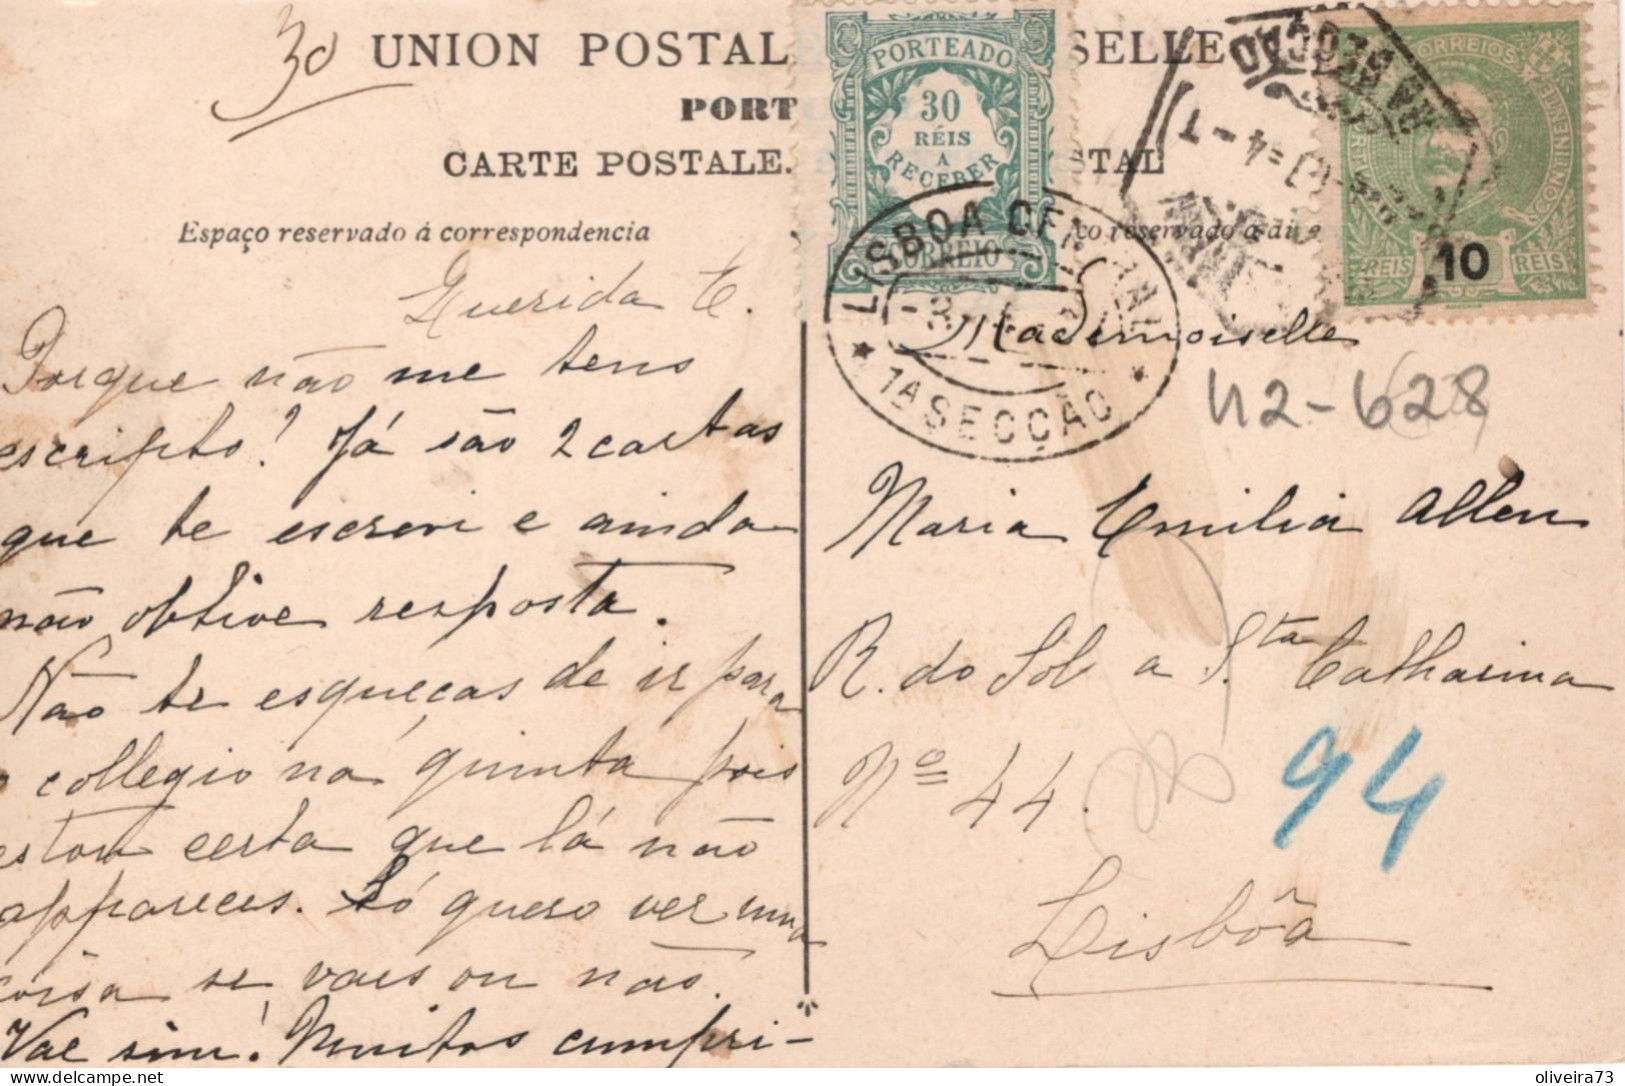 30
UNION POSTALE
SELLE
PORT
CARTE POSTALE.
TAL
Espaço reservado á correspondencia
ço reservado a di
PORTEADO
30
RÉIS
A
RECEBER
CORREIO
LISBOA CENTRAL
1A SECÇÃO
CORREIOS
REIS
10
REIS
Querida E.
Porque não me tens
escripto? Já são 2 cartas
que te escrevi e ainda
não obtive resposta.
Não te esqueças de ir para
o collegio na quinta pois
estou certa que lá não
appareces. Só quero ver uma
coisa se vaes ou não.
Vae sim! Muitos cumpri-
Mademoiselle
112-628
Maria Emilia Allen
R. do Sol a Sta Catharina
Nº 44.
94
Lisbôa
oliveira73